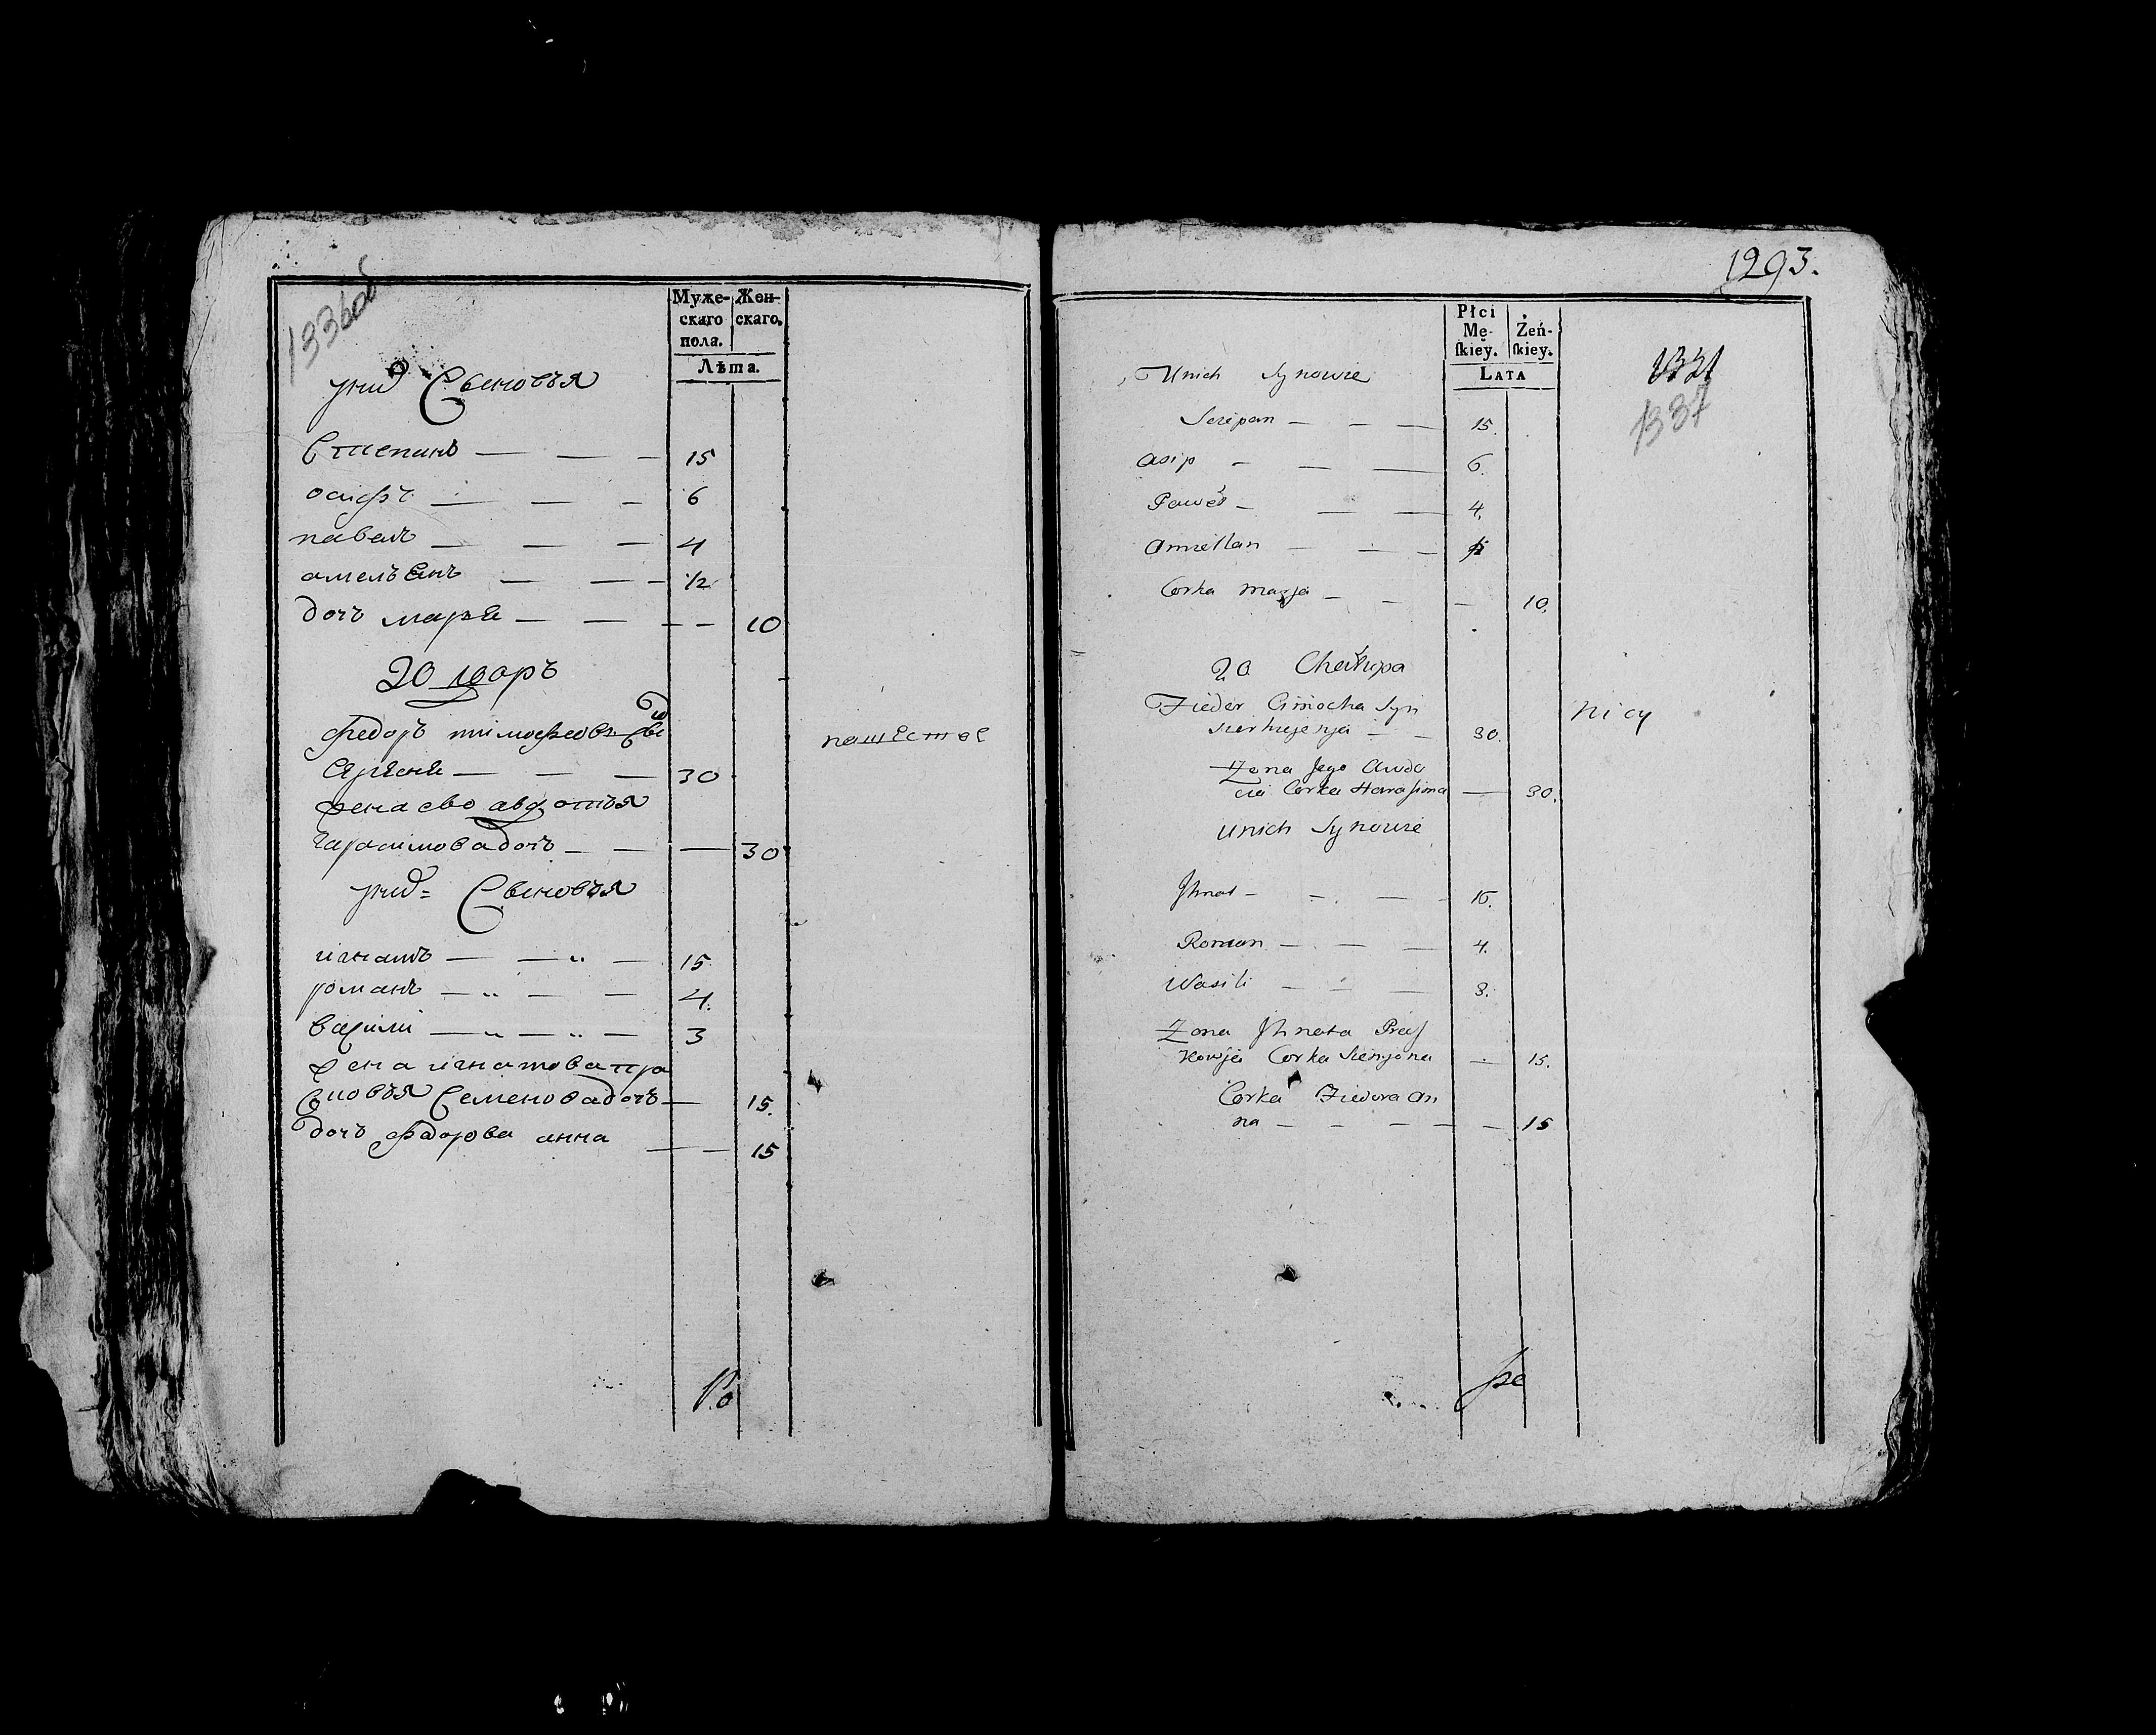 1336об
Муже-
скаго
пола.
Жен-
скаго.
Лѣта.
уних Сыновья
Степанъ — — — 15
осифъ — — — 6
павалъ — — — 4
омельянъ — — — 1/2
дочъ марья — — — — 10
20 дворъ
федоръ тимофеовъ
30
жена ево авдотья
гарасимова дочъ — — — 30
уних= Сыновья
игнатъ — — — 15.
романъ — — — 4.
васили — — — 3
жена игнатова пра
сковья Семенова дочъ — 15.
дочъ федорова анна — — 15
1293.
Płci
Mę-
ſkiey.
Żeń-
ſkiey.
LATA
1337
Unich Synowie
Sciepan — — — 15.
Asip — — — 6.
Paweł — — — 4.
Corka Marja — — — 10.
20 Chałupa
Fiedor Cimocha Syn
30.
Nicy
Żona Jego Awdo
cia Corka Harasima — 30.
Unich Synowie
Ihnat — — — 15.
Roman — — — 4.
Wasili — — — 3.
Żona Ihnata Pras
kowja Corka Siemjona — 15.
Corka Fiedora An
na — — — — — 15